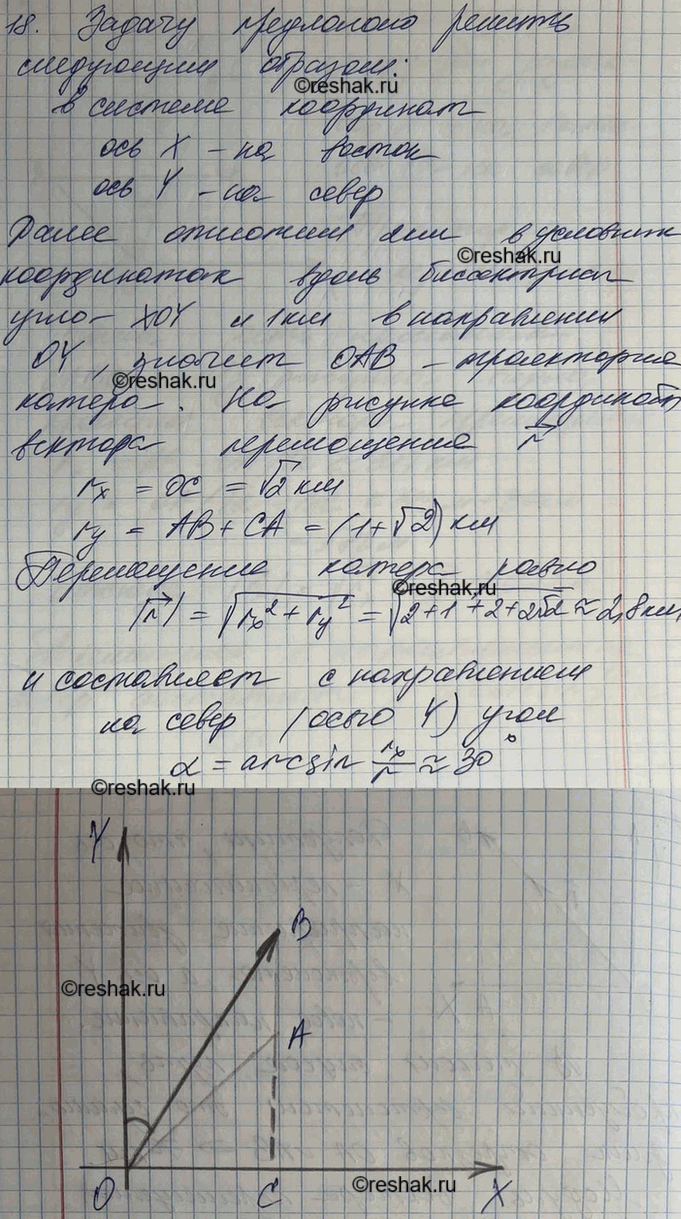 18. Задачу предложено решить
следующим образом:
©reshak.ru
в системе координат
ось X – на восток
ось Y – на север
Далее отложим 2км в условных
©reshak.ru
координатах вдоль биссектрисы
угла XOY и 1км в направлении
OY, значит OAB – траектория
©reshak.ru
катера. На рисунке координаты
вектора перемещение r⃗
rₓ = OC = √2 км
r_y = AB + CA = (1+√2) км
Перемещение катера равно
©reshak.ru
|r⃗| = √(rₓ² + r_y²) = √(2+1+2+2√2) ≈ 2,8км,
и составляет с направлением
на север (осью Y) угол
α = arcsin rₓ/r ≈ 30°
©reshak.ru
Y
B
©reshak.ru
A
O C ©reshak.ru X